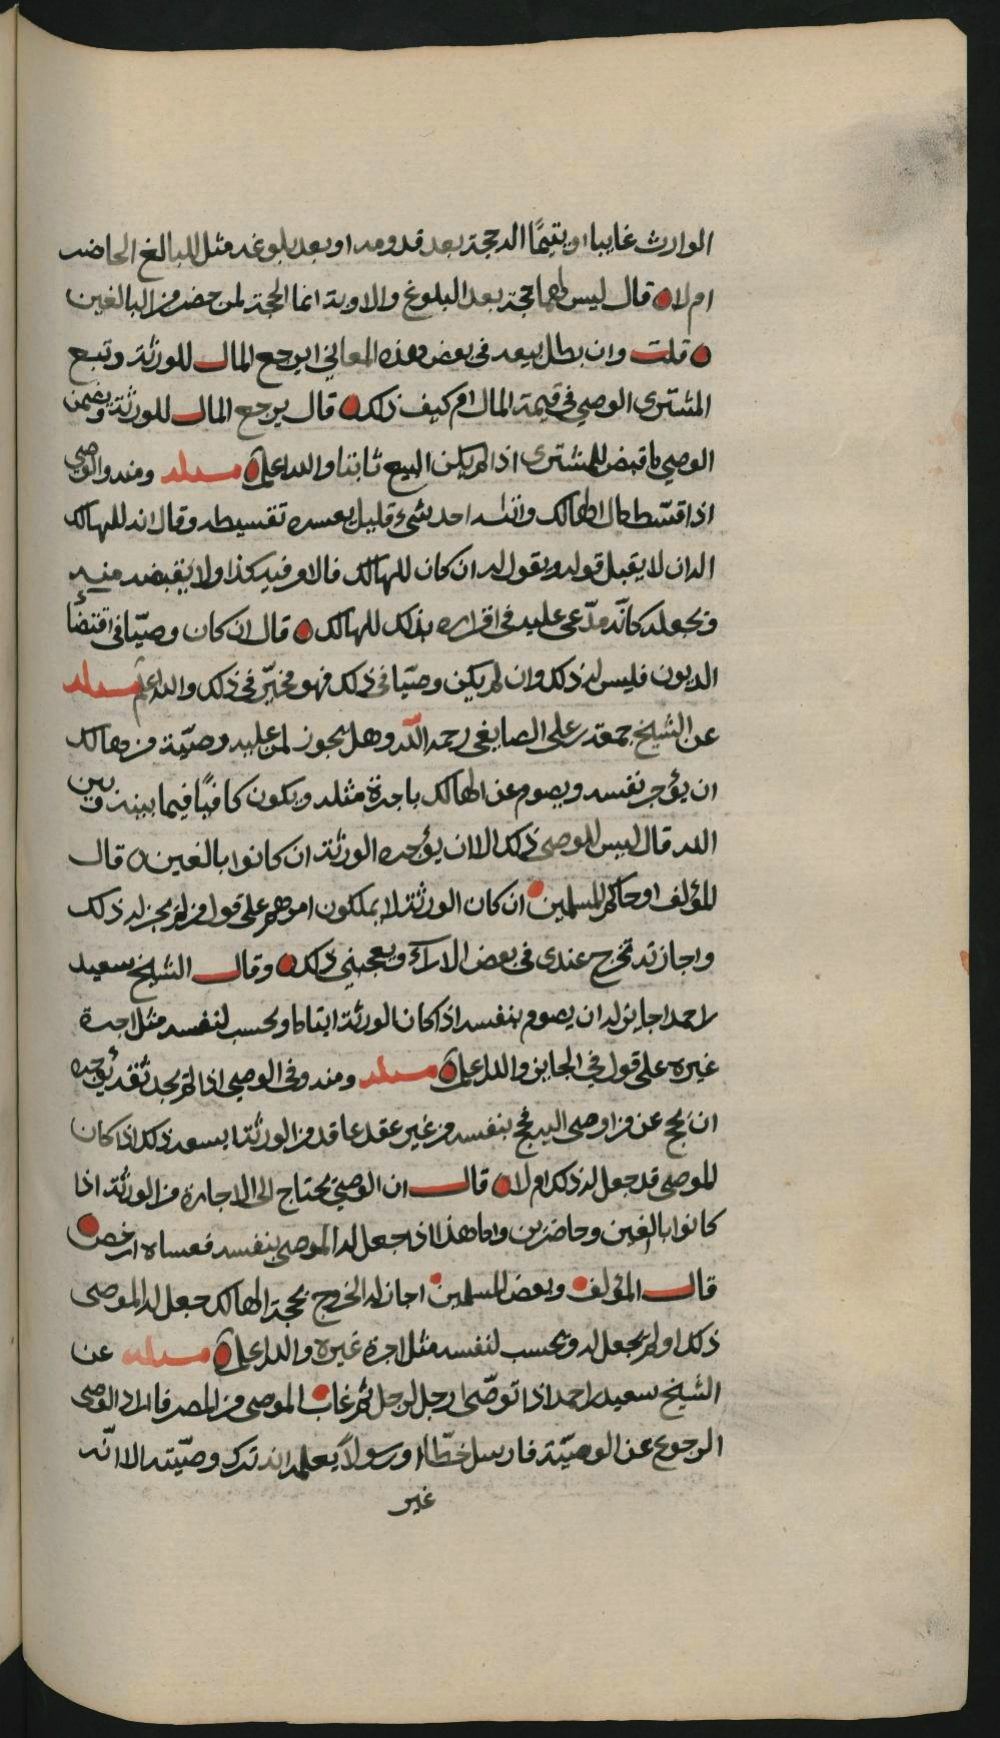 الوارث غايبا او يتيمًا اله حجة بعد قدومه او بعد بلوغه مثل البالغ الحاضر
ام لا قال ليس لهما حجة بعد البلوغ والاوبة انما الحجة لمن حضر من البالغين
قلت وان بطل بيعه في بعض هذه المعاني ايرجع المال للورثة وتبع
المشتري الوصي في قيمة المال ام كيف ذلك قال يرجع المال للورثة ويضمن
الوصي ما قبض للمشتري اذا لم يكن البيع ثابتا والله اعلم مسئلة ومنه والوصي
اذا قسّط مال الهالك واتاه احد بشيء قليل يعسره تقسيطه وقال انه للهالك
اله ان لا يقبل قوله ويقول له ان كان للهالك فالامر فيه كذا ولا يقبضه منه
ويجعله كانّه مدّعى عليه في اقراره بذلك للهالك قال ان كان وصيّا في اقتضاء
الديون فليس له ذلك وان لم يكن وصيّا في ذلك فهو مخيّر في ذلك والله اعلم مسئلة
عن الشيخ جمعة بن علي الصايغي رحمه الله وهل يجوز لمن عليه وصيّة من هالك
ان يؤجر نفسه ويصوم عن الهالك باجرة مثله ويكون كافيًا فيما بينه وبين
الله قال ليس للموصى ذلك الا ان يؤجره الورثة ان كانوا بالغين قال
المؤلف او حاكم المسلمين ان كان الورثة لا يملكون امرهم على قول من لم يجز له ذلك
واجازته تخرج عندي في بعض الاراء ويعجبني ذلك وقال الشيخ سعيد
بن احمد اجايز له ان يصوم بنفسه اذا كان الورثة ايتاما ويحسب لنفسه مثل اجرة
غيره على قول في الجايز والله اعلم مسئلة ومنه وفي الوصي اذا لم يجد ثقة يؤجره
ان يحج عن من اوصى اليه فحج بنفسه من غير عقد عاقد من الورثة ايسعه ذلك اذا كان
الموصي قد جعل له ذلك ام لا قال ان الوصي يحتاج الى الاجارة من الورثة اذا
كانوا بالغين وحاضرين واما هذا اذ جعل له الموصي بنفسه فعساه ارخص
قال المؤلف وبعض المسلمين اجاز له الخروج بحجة الهالك جعل له الموصي
ذلك او لم يجعل له ويحسب لنفسه مثل اجرة غيره والله اعلم مسئلة عن
الشيخ سعيد بن احمد اذا توصّى رجل لرجل ثم غاب الموصي من المصر فاراد الوصي
الرجوع عن الوصيّة فارسل خطّا او رسولًا يعلمه انه ترك وصيّته الا انّه
غير